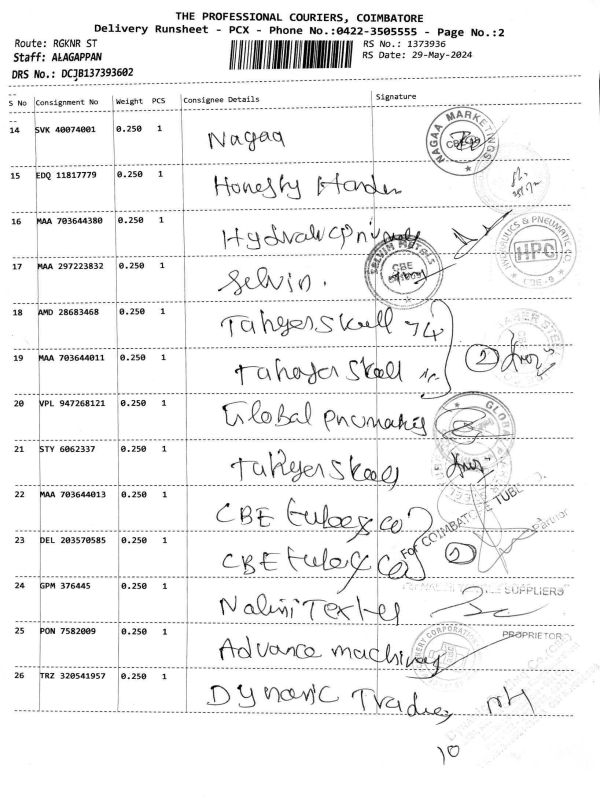 THE PROFESSIONAL COURIERS, COIMBATORE
Delivery Runsheet - PCX - Phone No.:0422-3505555 - Page No.:2
Route: RGKNR ST
RS No.: 1373936
Staff: ALAGAPPAN
RS Date: 29-May-2024
DRS No.: DCJB137393602
S No Consignment No Weight PCS Consignee Details Signature
14 SVK 40074001 0.250 1 Nagaa
NAGAA MARKETINGS
15 EDQ 11817779 0.250 1 Honesty
16 MAA 703644380 0.250 1
HYDRAULICS & PNEUMATIC CO
HPC
CBE-9
17 MAA 297223832 0.250 1 Selvin.
SELVIN METALS
CBE
18 AMD 28683468 0.250 1
19 MAA 703644011 0.250 1
2
20 VPL 947268121 0.250 1 Global pnumatis
GLOBAL
21 STY 6062337 0.250 1
22 MAA 703644013 0.250 1 CBE tubes & co
FOR COIMBATORE TUBE
Partner
23 DEL 203570585 0.250 1 CBE tube & Co
2
24 GPM 376445 0.250 1 Nalini Tex
SUPPLIERS
25 PON 7582009 0.250 1 Advance machinery
PROPRIETOR
CORPORATION
26 TRZ 320541957 0.250 1 Dynamic Trades
10